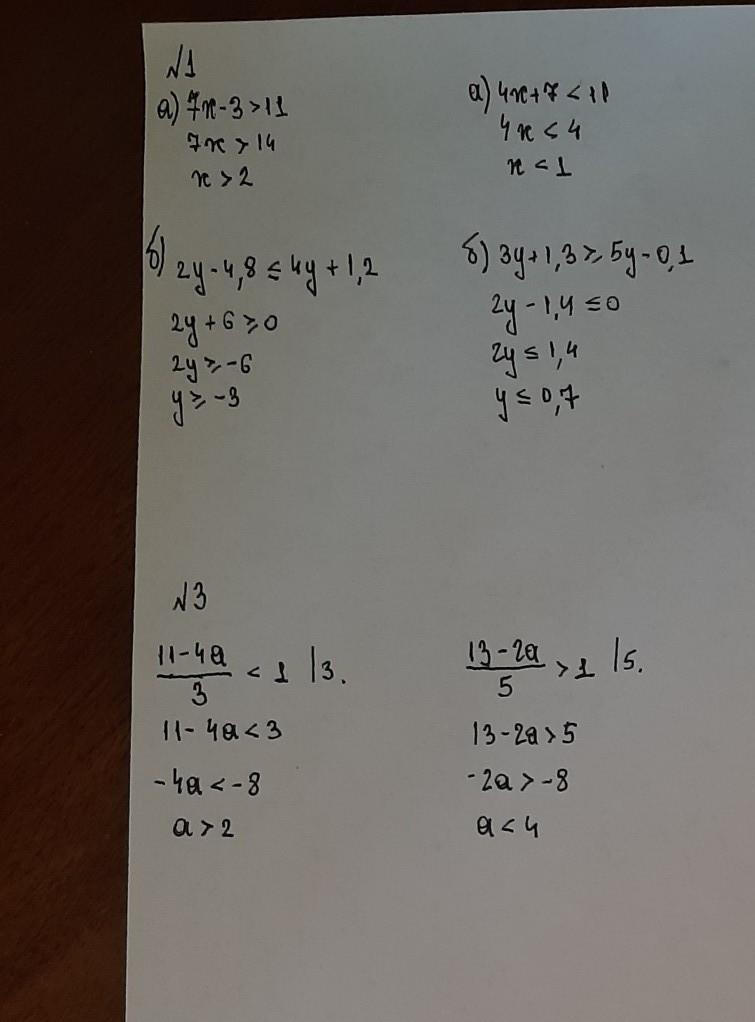 №1
а) 7x-3>11
7x>14
x>2
б) 2y-4,8≤4y+1,2
2y+6≥0
2y≥-6
y≥-3
а) 4x+7<11
4x<4
x<1
б) 3y+1,3≥5y-0,1
2y-1,4≤0
2y≤1,4
y≤0,7
№3
11-4a/3 < 1 |3.
11-4a<3
-4a<-8
a>2
13-2a/5 >1 |5.
13-2a>5
-2a>-8
a<4